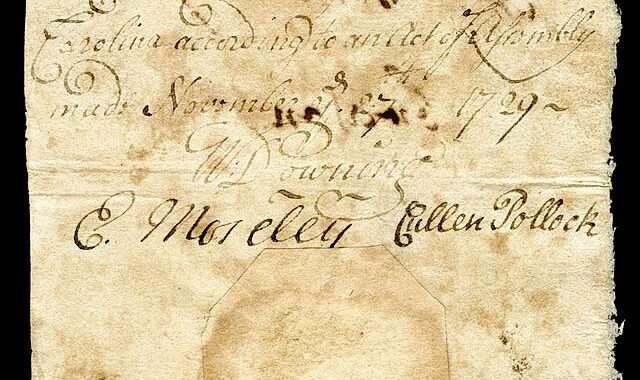 Carolina according to an Act of Assembly
made November yͤ. 27th 1729~
W: Downing
E. Moseley Cullen Pollock